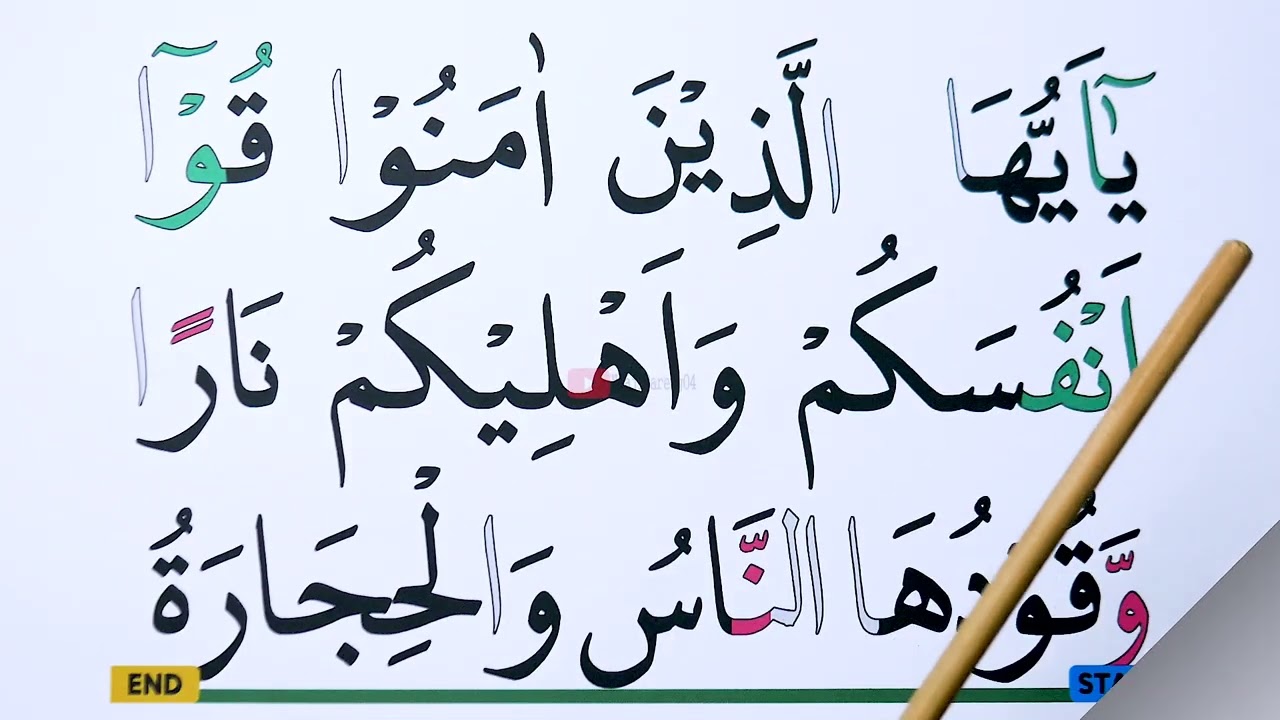 يٰٓاَيُّهَا الَّذِيْنَ اٰمَنُوْا قُوْٓا
اَنْفُسَكُمْ وَاَهْلِيْكُمْ نَارًا
وَّقُوْدُهَا النَّاسُ وَالْحِجَارَةُ
END